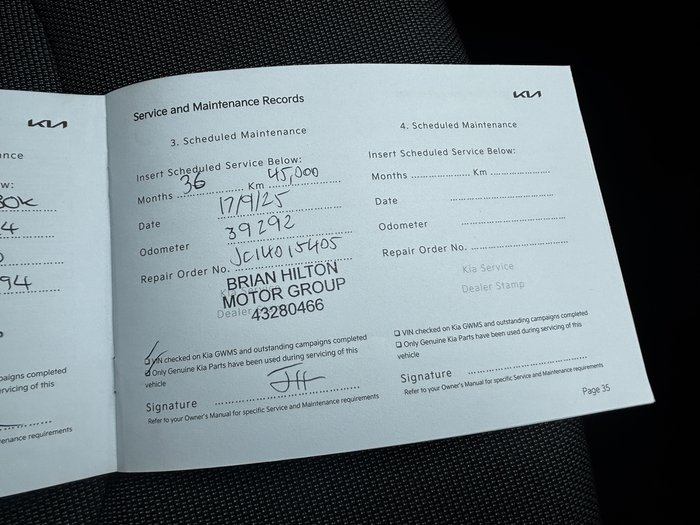 KIA
nce
w:
30K
4
94
paigns completed
rvicing of this
enance requirements
Service and Maintenance Records
3. Scheduled Maintenance
Insert Scheduled Service Below:
Months 36 Km 45,000
Date 17/9/25
Odometer 39292
Repair Order No. JC14015405
Kia Service
Dealer
BRIAN HILTON
MOTOR GROUP
43280466
VIN checked on Kia GWMS and outstanding campaigns completed
Only Genuine Kia Parts have been used during servicing of this
vehicle
Signature
Refer to your Owner's Manual for specific Service and Maintenance requirements
KIA
4. Scheduled Maintenance
Insert Scheduled Service Below:
Months Km
Date
Odometer
Repair Order No.
Kia Service
Dealer Stamp
VIN checked on Kia GWMS and outstanding campaigns completed
Only Genuine Kia Parts have been used during servicing of this
vehicle
Signature
Refer to your Owner's Manual for specific Service and Maintenance requirements
Page 35